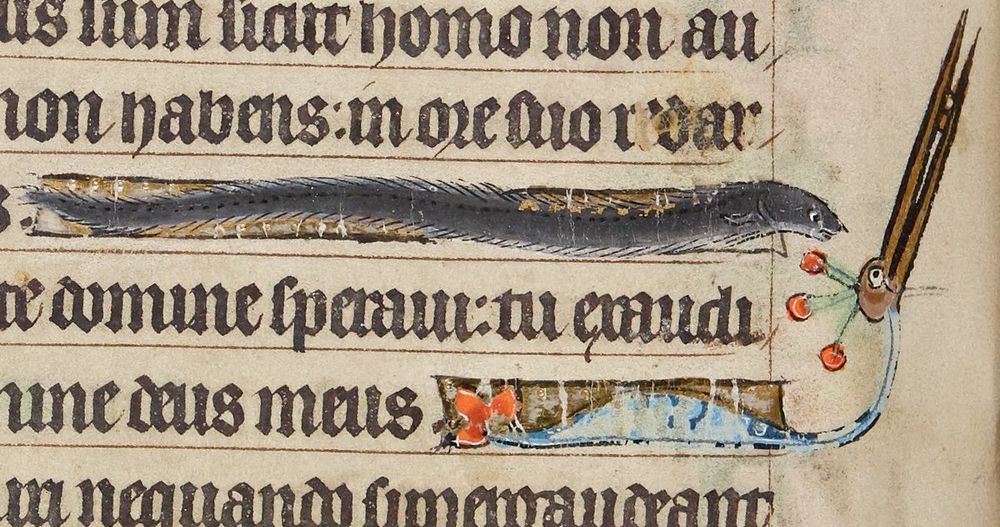 us sum sicut homo non au
non habens: in ore suo redar
s.
te domine speraui: tu exaudi
mine deus meus.
xi nequando supergaudeant